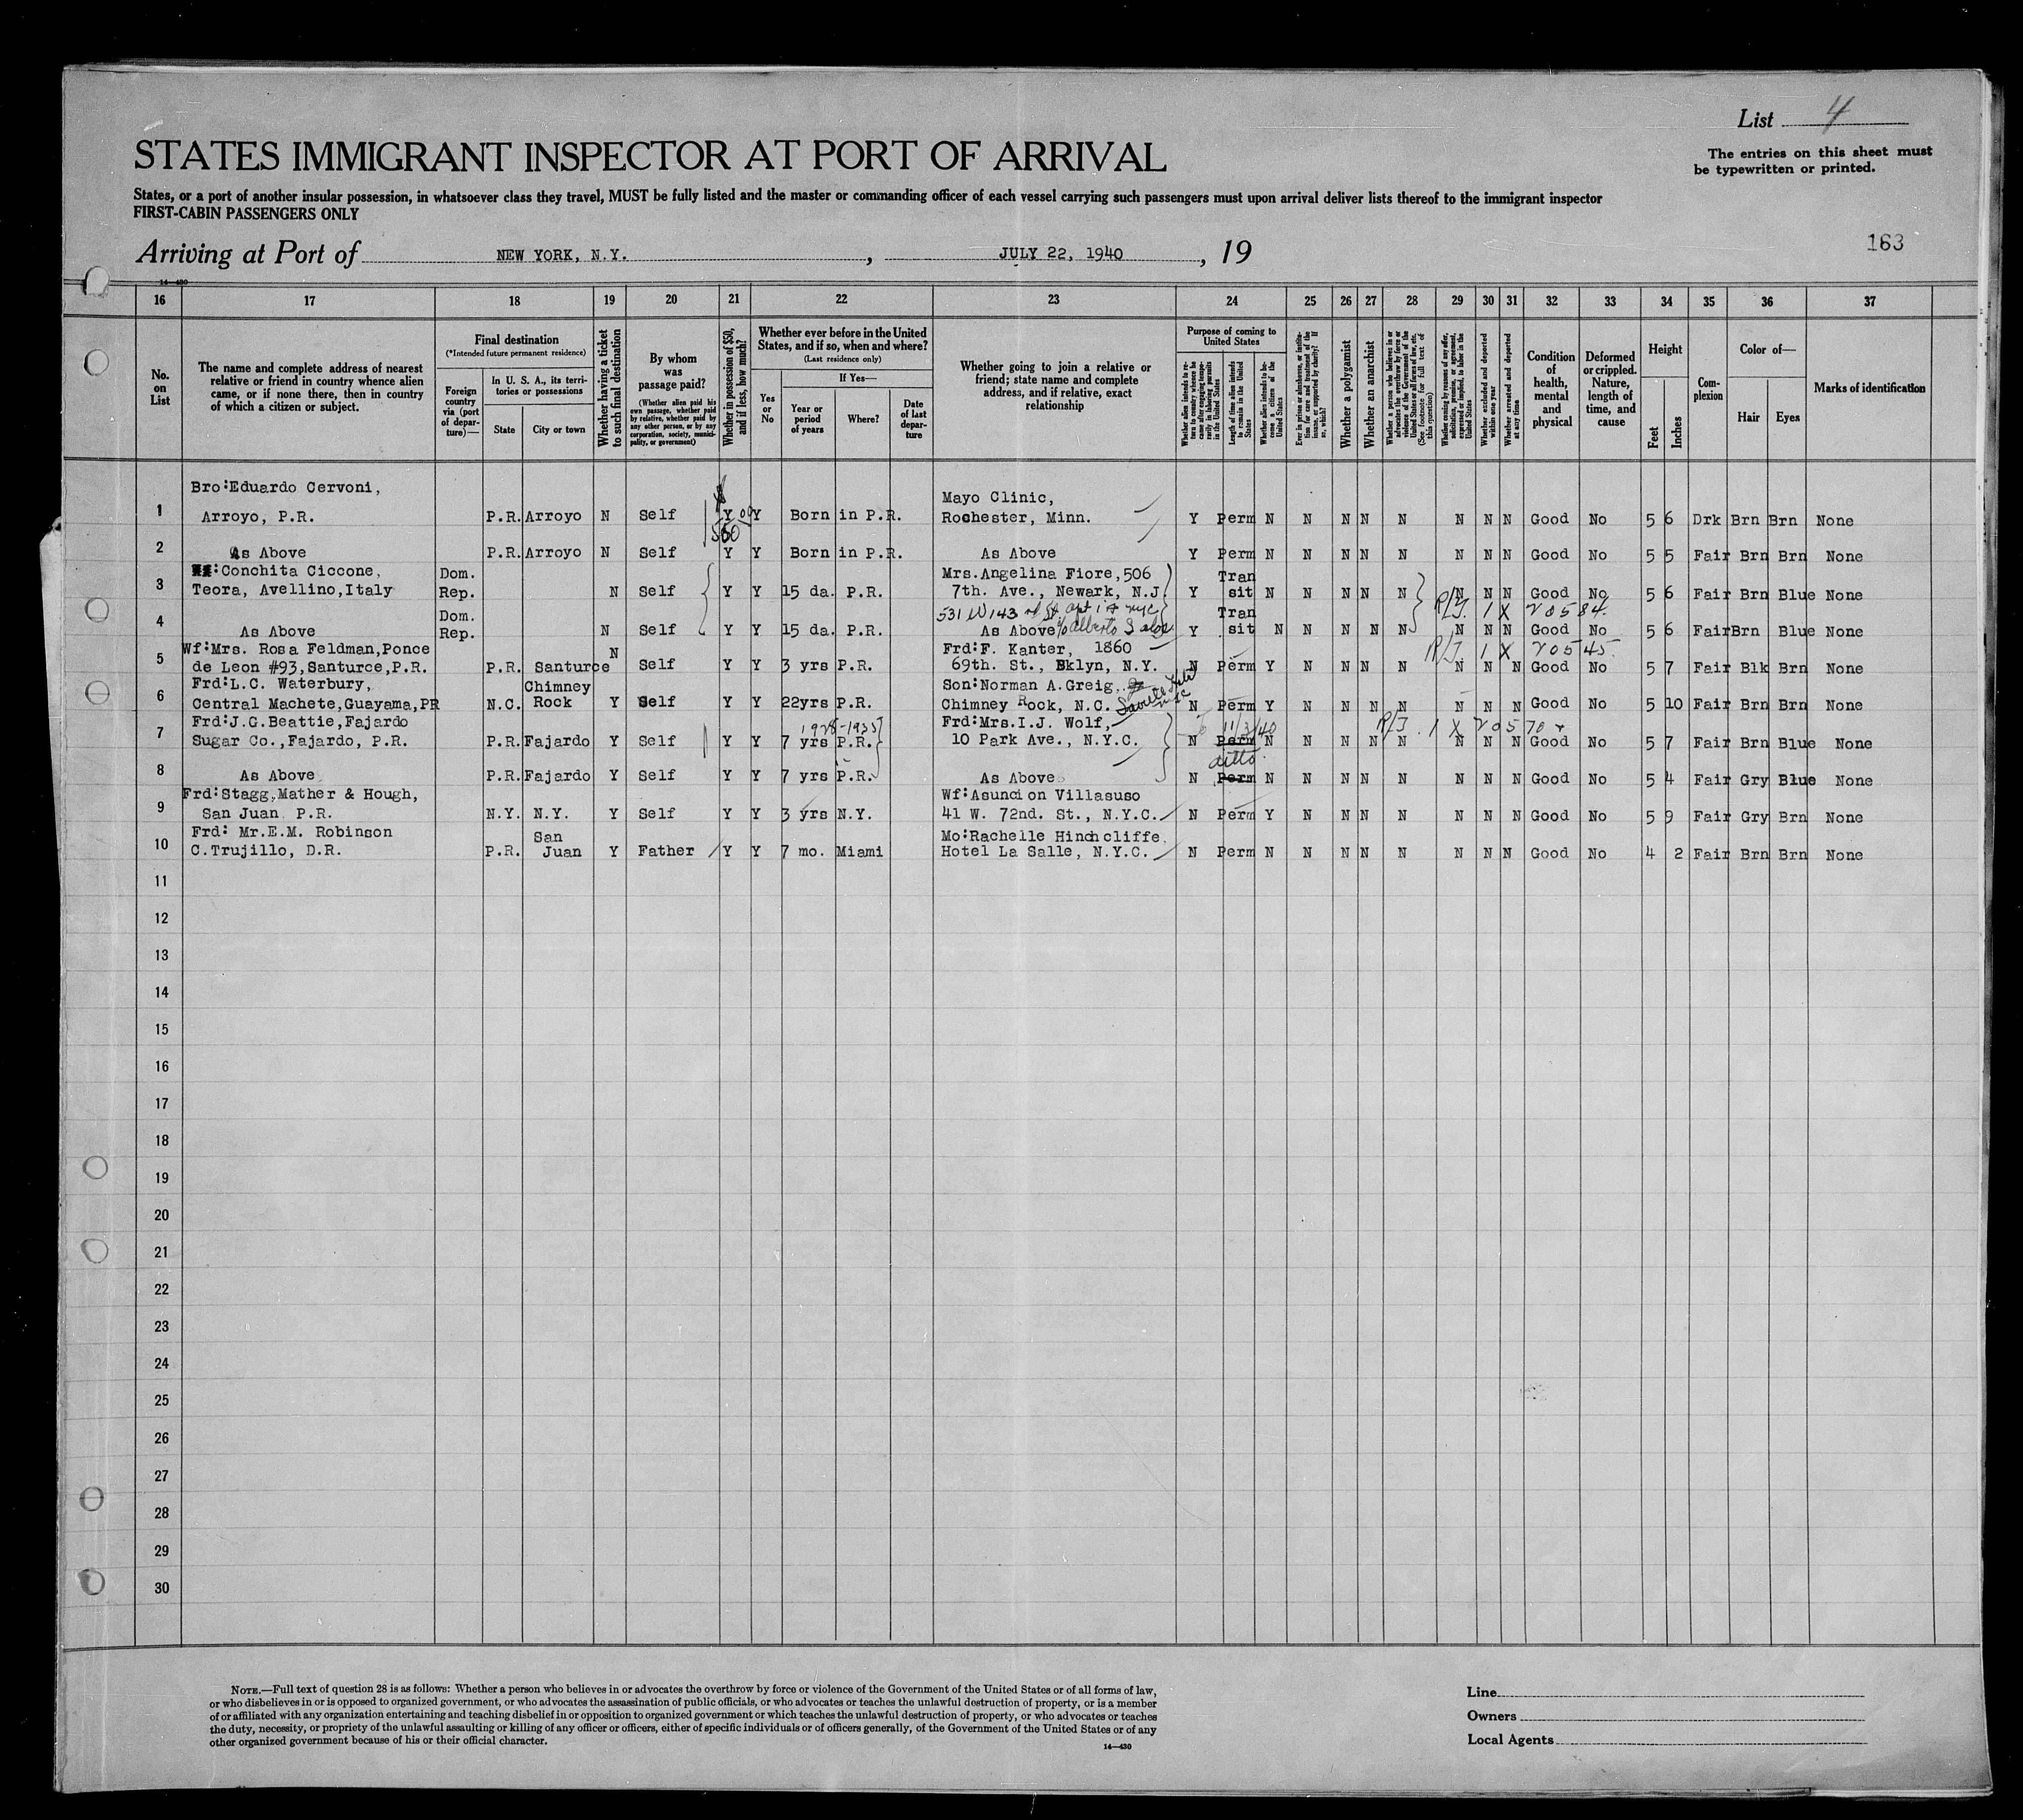 List 4
The entries on this sheet must
be typewritten or printed.
STATES IMMIGRANT INSPECTOR AT PORT OF ARRIVAL
States, or a port of another insular possession, in whatsoever class they travel, MUST be fully listed and the master or commanding officer of each vessel carrying such passengers must upon arrival deliver lists thereof to the immigrant inspector
FIRST-CABIN PASSENGERS ONLY
Arriving at Port of NEW YORK, N.Y. , JULY 22, 1940 , 19
163
14—430
16 17 18 19 20 21 22 23 24 25 26 27 28 29 30 31 32 33 34 35 36 37
No. on List
The name and complete address of nearest relative or friend in country whence alien came, or if none there, then in country of which a citizen or subject.
Final destination
(*Intended future permanent residence)
Foreign country via (port of departure)—
In U. S. A., its territories or possessions
State
City or town
Whether having a ticket to such final destination
By whom was passage paid?
(Whether alien paid his own passage, whether paid by relative, whether paid by any other person, or by any corporation, society, municipality, or government)
Whether in possession of $50, and if less, how much?
Whether ever before in the United States, and if so, when and where?
(Last residence only)
Yes or No
If Yes—
Year or period of years
Where?
Date of last departure
Whether going to join a relative or friend; state name and complete address, and if relative, exact relationship
Purpose of coming to United States
Whether alien intends to return to country whence he came after engaging temporarily in laboring pursuits in the United States
Length of time alien intends to remain in the United States
Whether alien intends to become a citizen of the United States
Ever in prison or almshouse, or institution for care and treatment of the insane, or supported by charity? If so, which?
Whether a polygamist
Whether an anarchist
Whether a person who believes in or advocates the overthrow by force or violence of the Government of the United States or all forms of law, etc. (See footnote for full text of this question)
Whether coming by reason of any offer, solicitation, promise, or agreement, expressed or implied, to labor in the United States
Whether excluded and deported within one year
Whether arrested and deported at any time
Condition of health, mental and physical
Deformed or crippled. Nature, length of time, and cause
Height
Feet
Inches
Complexion
Color of—
Hair
Eyes
Marks of identification
Bro:Eduardo Cervoni, Mayo Clinic,
1 Arroyo, P.R. P.R. Arroyo N Self Y Y Born in P.R. Rochester, Minn. Y Perm N N N N N N N N Good No 5 6 Drk Brn Brn None
2 As Above P.R. Arroyo N Self Y Y Born in P.R. As Above Y Perm N N N N N N N N Good No 5 5 Fair Brn Brn None
:Conchita Ciccone, Dom. Mrs.Angelina Fiore,506 Tran
3 Teora, Avellino,Italy Rep. N Self Y Y 15 da. P.R. 7th. Ave., Newark, N.J. Y sit N N N N N N N N Good No 5 6 Fair Brn Blue None
Dom. 531 W 143 rd St apt NYC Tran R/J. 1 X 20584.
4 As Above Rep. N Self Y Y 15 da. P.R. As Above c/o Alberto Y sit N N N N N N N N Good No 5 6 Fair Brn Blue None
Wf:Mrs. Rosa Feldman,Ponce N Frd:F. Kanter, 1860 R/J. 1 X 20545.
5 de Leon #93,Santurce,P.R. P.R. Santurce Self Y Y 3 yrs P.R. 69th. St., Bklyn, N.Y. N Perm Y N N N N N N N Good No 5 7 Fair Blk Brn None
Frd:L.C. Waterbury, Chimney Son:Norman A.Greig,
6 Central Machete,Guayama,PR N.C. Rock Y Self Y Y 22yrs P.R. Chimney Rock, N.C. N Perm Y N N N N N N N Good No 5 10 Fair Brn Brn None
Frd:J.G.Beattie,Fajardo 1928-1935 Frd:Mrs.I.J. Wolf, 11/3/40 R/J. 1 X 20570
7 Sugar Co.,Fajardo, P.R. P.R. Fajardo Y Self Y Y 7 yrs P.R. 10 Park Ave., N.Y.C. N Perm N N N N N N N N Good No 5 7 Fair Brn Blue None
ditto.
8 As Above P.R. Fajardo Y Self Y Y 7 yrs P.R. As Above N Perm N N N N N N N N Good No 5 4 Fair Gry Blue None
Frd:Stagg,Mather & Hough, Wf:Asuncion Villasuso
9 San Juan P.R. N.Y. N.Y. Y Self Y Y 3 yrs N.Y. 41 W. 72nd. St., N.Y.C. N Perm Y N N N N N N N Good No 5 9 Fair Gry Brn None
Frd: Mr.E.M. Robinson San Mo:Rachelle Hinchcliffe,
10 C.Trujillo, D.R. P.R. Juan Y Father Y Y 7 mo. Miami Hotel La Salle, N.Y.C. N Perm N N N N N N N N Good No 4 2 Fair Brn Brn None
11
12
13
14
15
16
17
18
19
20
21
22
23
24
25
26
27
28
29
30
NOTE.—Full text of question 28 is as follows: Whether a person who believes in or advocates the overthrow by force or violence of the Government of the United States or of all forms of law,
or who disbelieves in or is opposed to organized government, or who advocates the assassination of public officials, or who advocates or teaches the unlawful destruction of property, or is a member
of or affiliated with any organization entertaining and teaching disbelief in or opposition to organized government or which teaches the unlawful destruction of property, or who advocates or teaches
the duty, necessity, or propriety of the unlawful assaulting or killing of any officer or officers, either of specific individuals or of officers generally, of the Government of the United States or of any
other organized government because of his or their official character.
14—430
Line
Owners
Local Agents